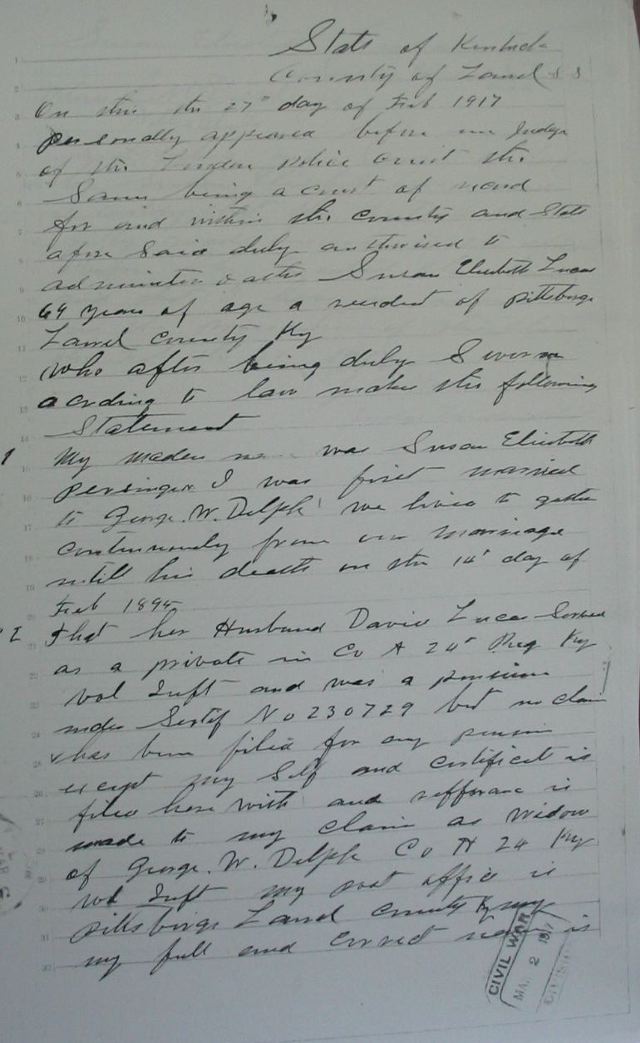 State of Kentuck
County of Laurel SS
On this the 27" day of Feb 1917
personally appeared before me Judge
of the London Police Court the
Same being a court of record
for and within the county and State
afore Said duly authorised to
administer oaths Susan Elizebeth Lucas
64 years of age a resident of Pittsburge
Laurel county Ky
who after being duly Sworn
acording to law makes the following
Statement
1 My maden was Susan Elizebeth
Persinger I was first married
to George. W. Delph we lived to gether
continuously from our marriage
untill his death on the 14" day of
Feb 1895
2 That her Husband David Lucas Served
as a private in Co A 24" Reg Ky
vol Inft and was a pensioner
under Sertif No 230729 but no claim
has been filed for any pension
except my Self and certificat is
filed here with and refferance is
made to my claim as Widow
of George. W. Delph Co H 24 Ky
vol Inft my post office is
Pittsburge Laurel county Ky
my full and correct name is
CIVIL WAR
2 1917
DIVISION